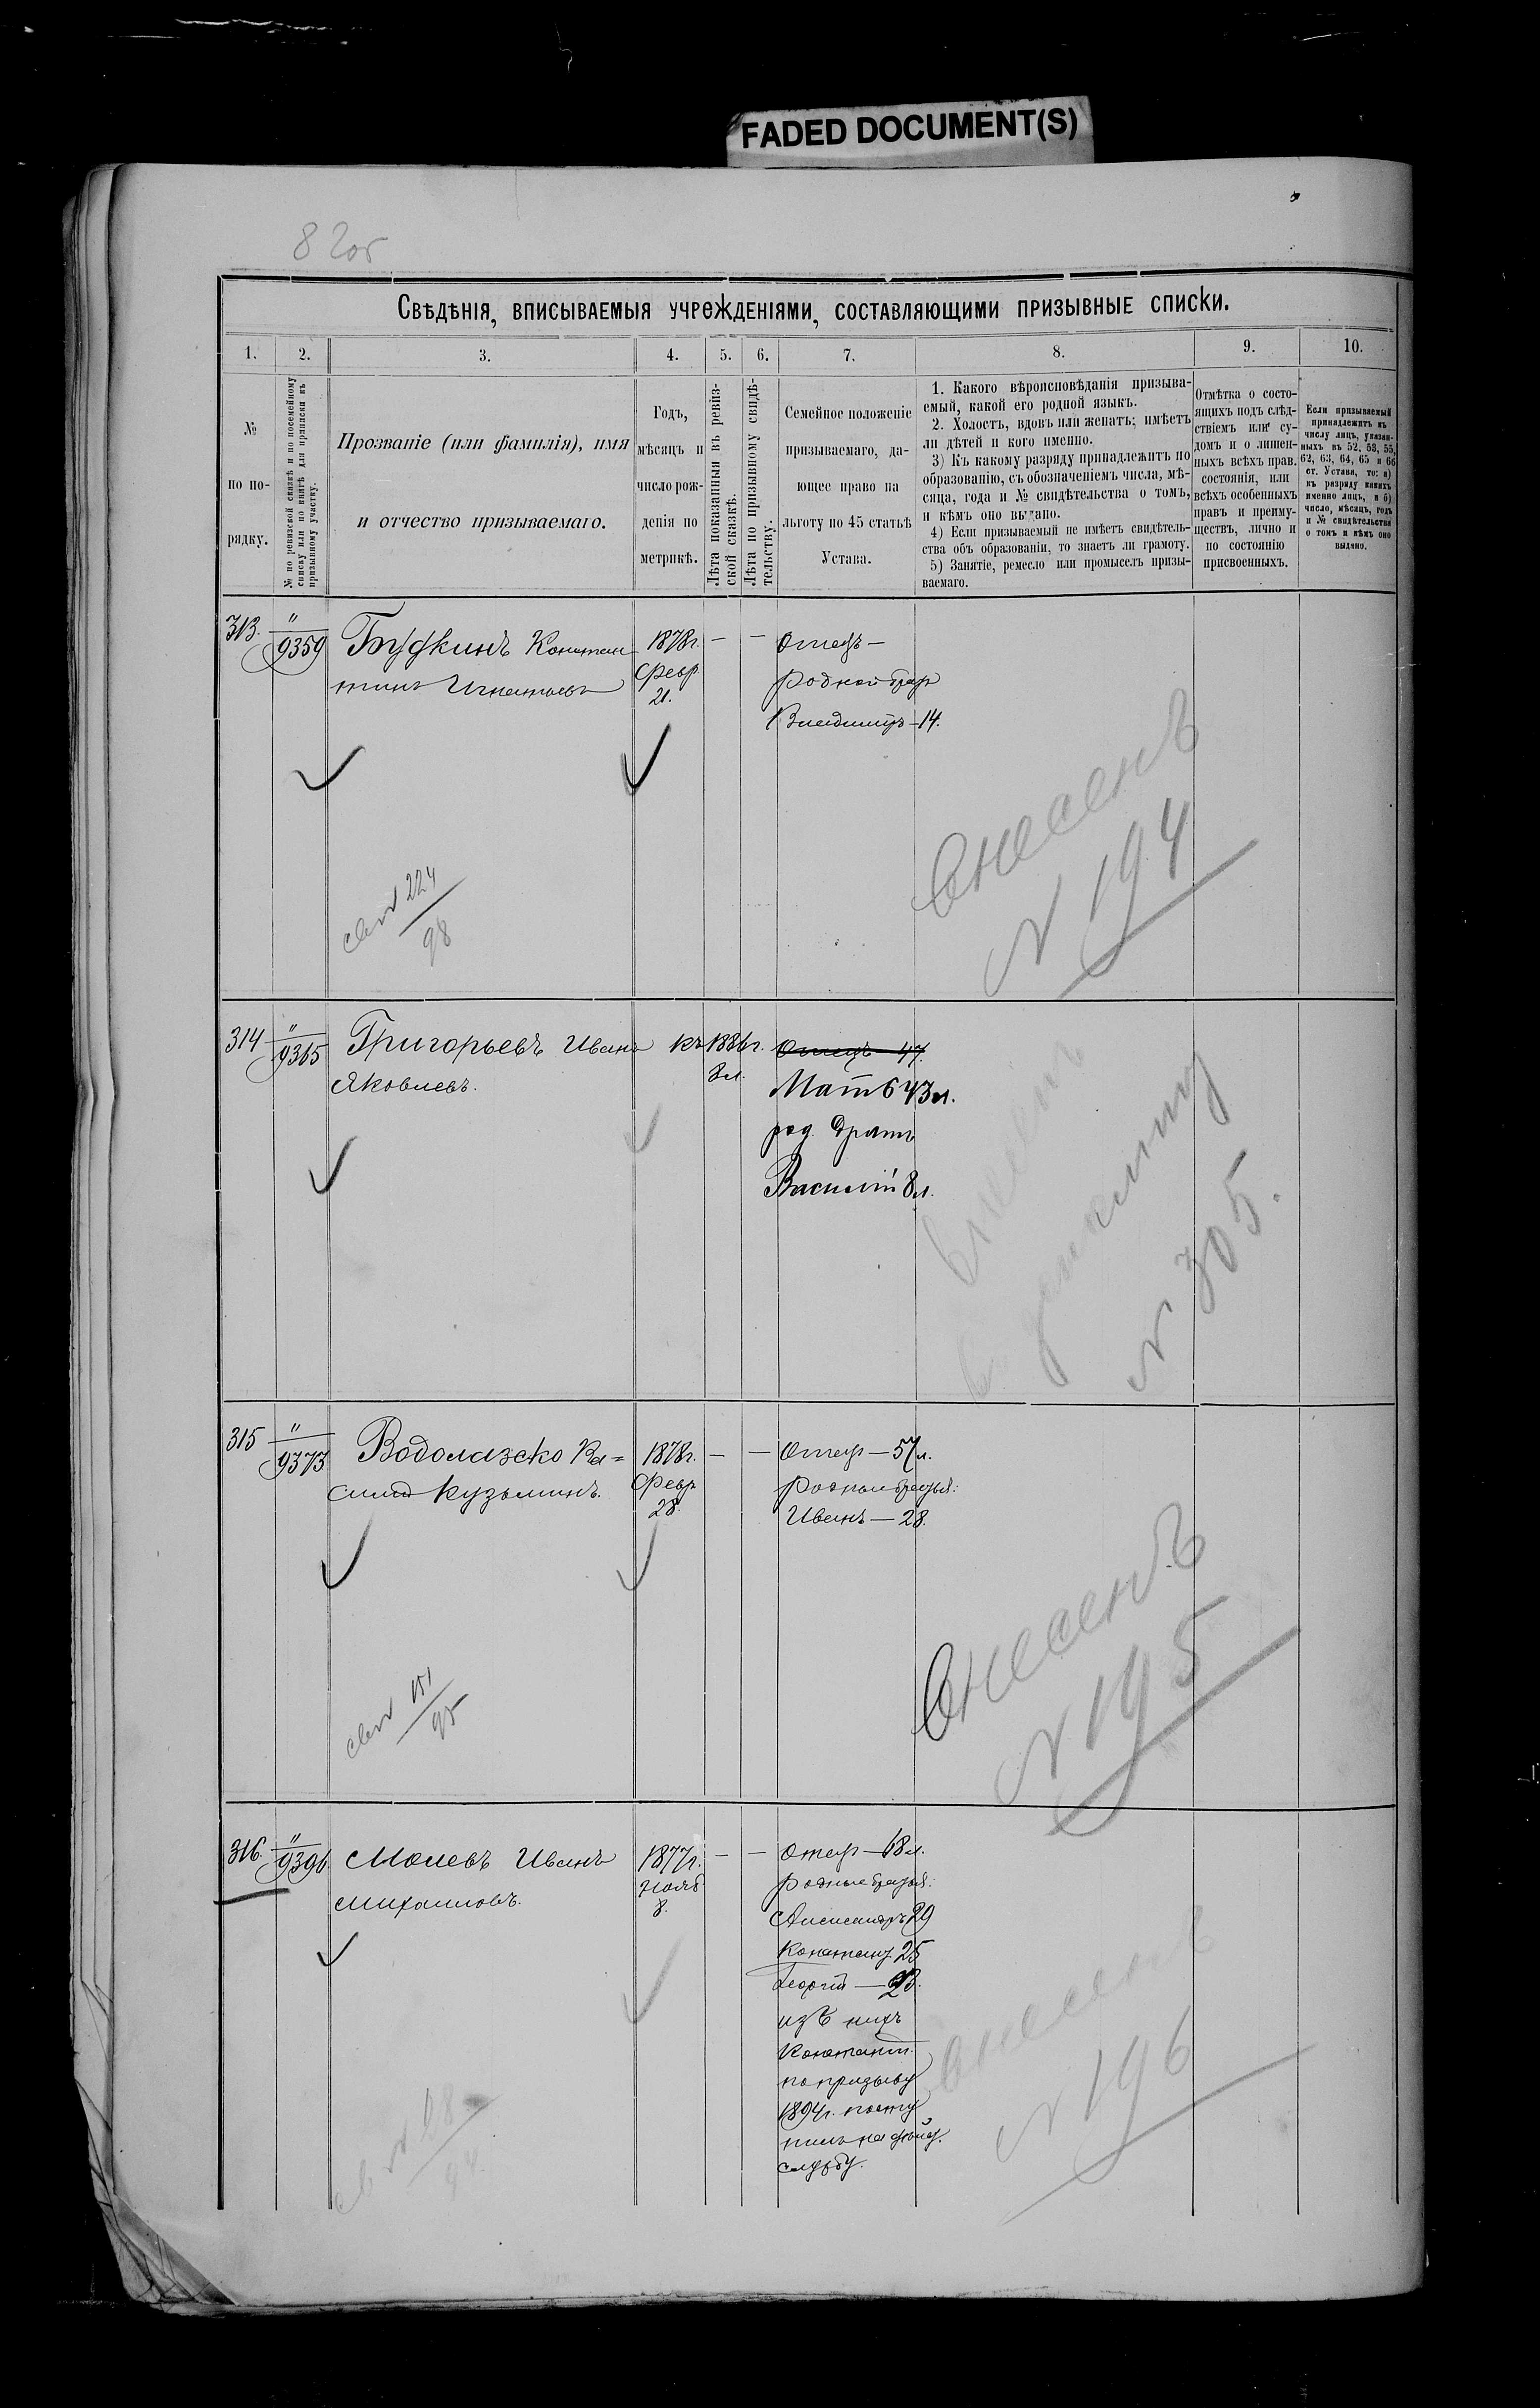 FADED DOCUMENT(S)
8 2об
Свѣдѣнія, вписываемыя учрежденіями, составляющими призывные списки.
1. 2. 3. 4. 5. 6. 7. 8. 9. 10.
№
по по-
рядку.
№ по ревизской сказкѣ и по посемейному
списку или по книгѣ для приписки къ
призывному участку.
Прозваніе (или фамилія), имя
и отчество призываемаго.
Годъ,
мѣсяцъ и
число рож-
денія по
метрикѣ.
Лѣта показанныя въ ревиз-
ской сказкѣ.
Лѣта по призывному свидѣ-
тельству.
Семейное положеніе
призываемаго, да-
ющее право на
льготу по 45 статьѣ
Устава.
1. Какого вѣроисповѣданія призыва-
емый, какой его родной языкъ.
2. Холостъ, вдовъ или женатъ; имѣетъ
ли дѣтей и кого именно.
3) Къ какому разряду принадлежитъ по
образованію, съ обозначеніемъ числа, мѣ-
сяца, года и № свидѣтельства о томъ,
и кѣмъ оно выдано.
4) Если призываемый не имѣетъ свидѣтель-
ства объ образованіи, то знаетъ ли грамоту.
5) Занятіе, ремесло или промыселъ призы-
ваемаго.
Отмѣтка о состо-
ящихъ подъ слѣд-
ствіемъ или су-
домъ и о лишен-
ныхъ всѣхъ прав.
состоянія, или
всѣхъ особенныхъ
правъ и преиму-
ществъ, лично и
по состоянію
присвоенныхъ.
Если призываемый
принадлежитъ къ
числу лицъ, указан-
ныхъ въ 52, 53, 55,
62, 63, 64, 65 и 66
ст. Устава, то: а)
къ разряду какихъ
именно лицъ, и б)
число, мѣсяцъ, годъ
и № свидѣтельства
о томъ и кѣмъ оно
выдано.
313. " 9359 Константи- 1878г. — — Отецъ —
тинъ Игнатьевъ Февр. родной братъ
21. Владиміръ — 14.
внесенъ
№ 194
свид 224
98
314 " 9365 Григорьевъ Иванъ къ 1886г. Отецъ 47.
Яковлевъ. 8л. Мать 43л.
род. братъ
Василій 8л.
внесенъ
№ 305.
315 " 9373 Водолазско Ва= 1878г. — — Отецъ — 57л.
силій Кузьминъ. Февр. родные братья:
28. Иванъ — 28.
внесенъ
№ 195
свид 151
95
316. " 9396. Молевъ Иванъ 1877г. — — Отецъ — 68л.
Михаиловъ. Нояб. родные братья:
8. Александръ 29
Константъ 25
Георгій — 23.
изъ нихъ
Константин.
по призыву
1894г. посту
пилъ на дѣйст.
службу.
внесенъ
№ 196